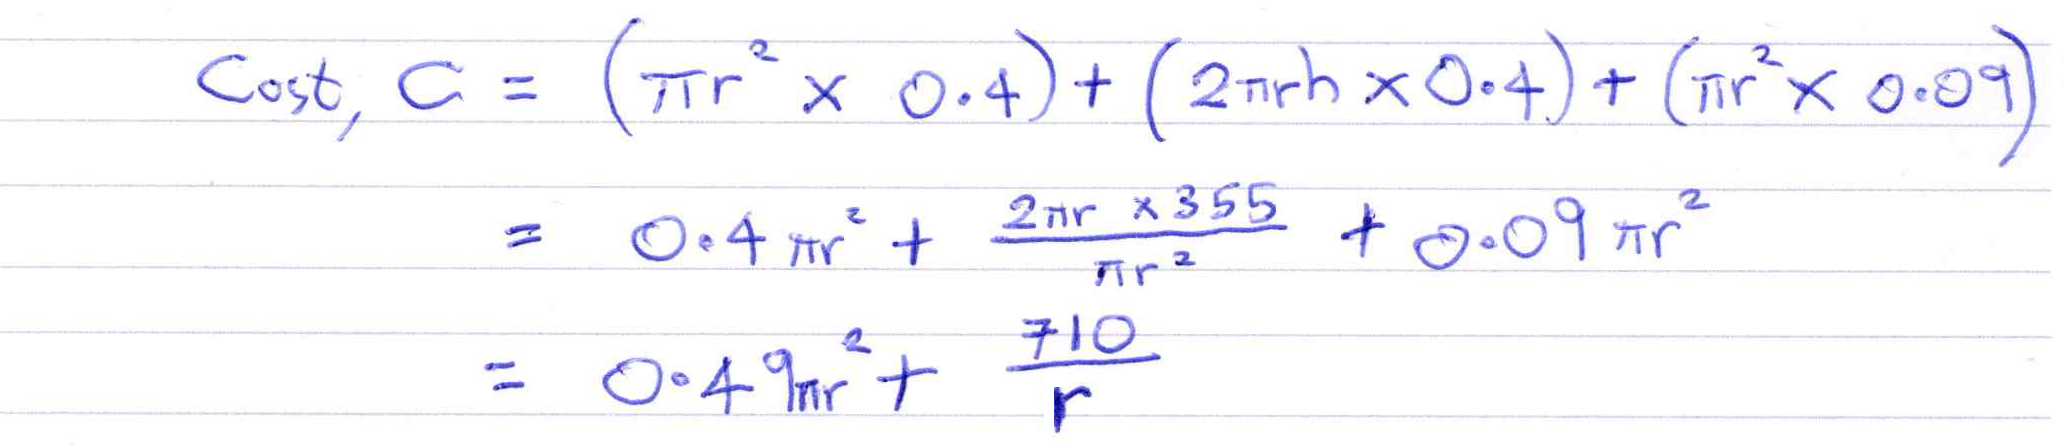 Cost, C = (πr² × 0.4) + (2πrh × 0.4) + (πr² × 0.09)
= 0.4πr² + (2πr × 355)/(πr²) + 0.09πr²
= 0.49πr² + 710/r